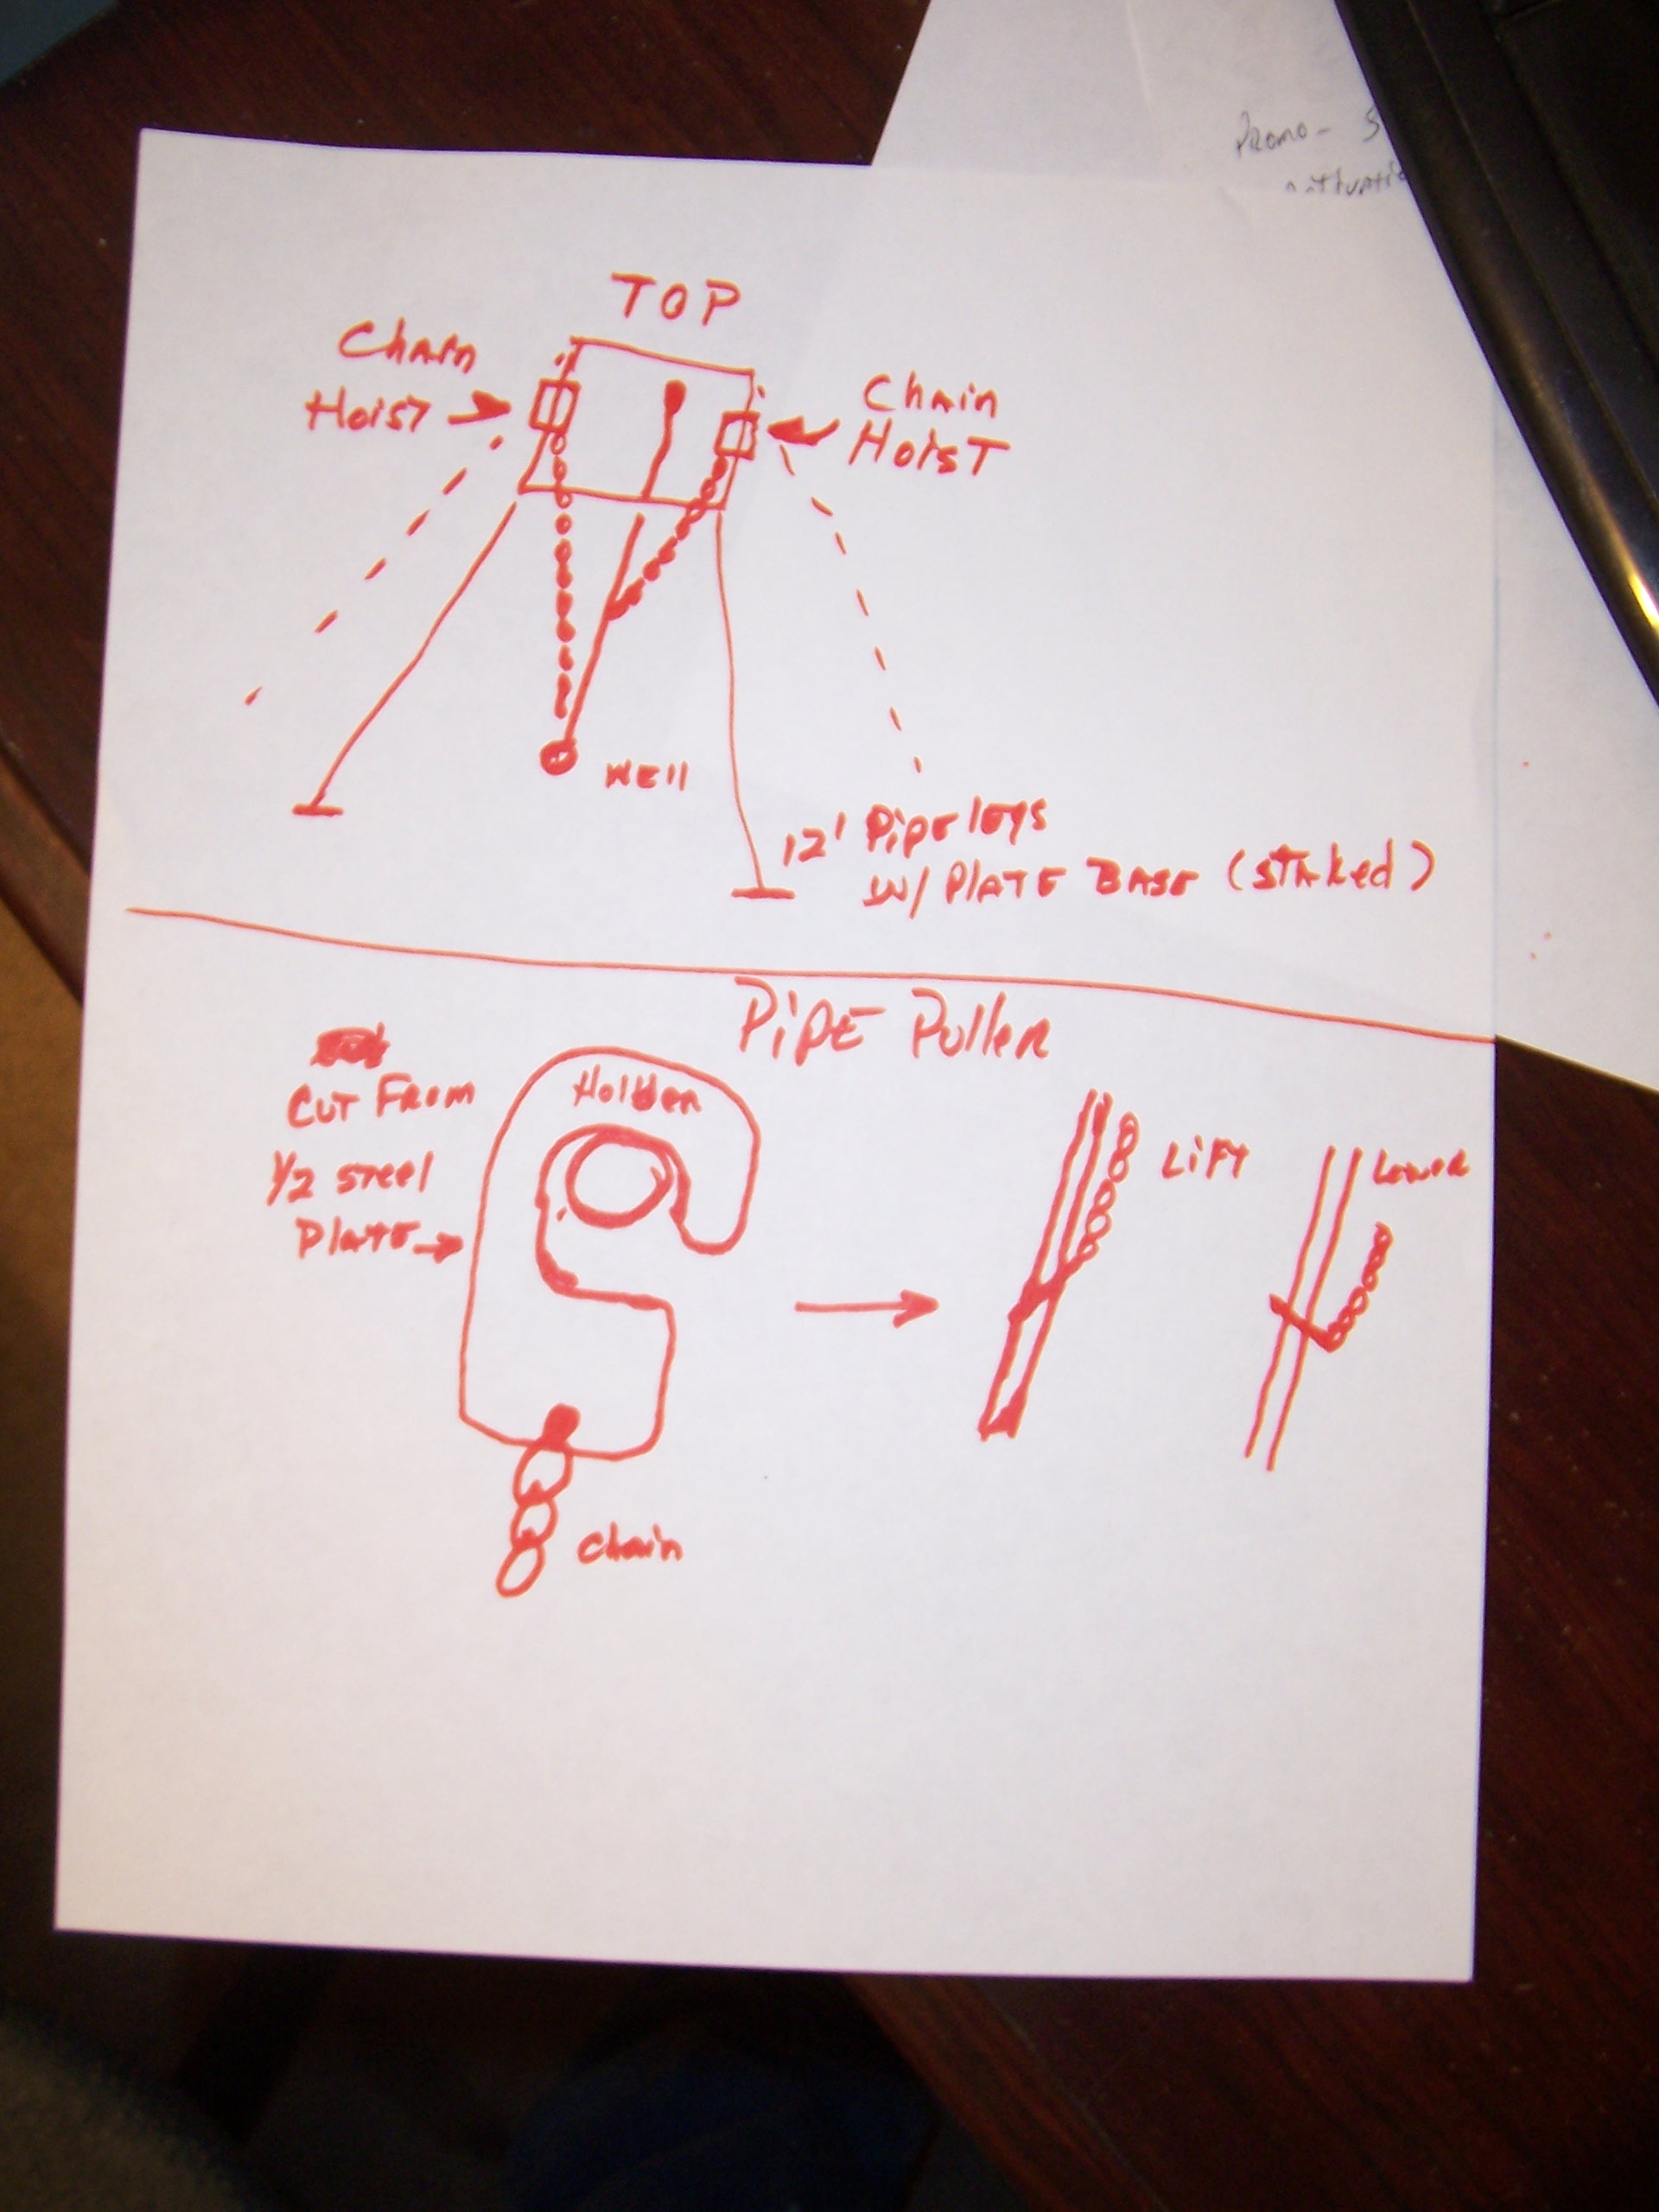 TOP
Chain
Hoist
Chain
Hoist
Well
12' Pipe legs
w/ Plate Base (staked)
Pipe Puller
Cut From
1/2 steel
Plate
Holder
Lift
Lower
chain
Promo-